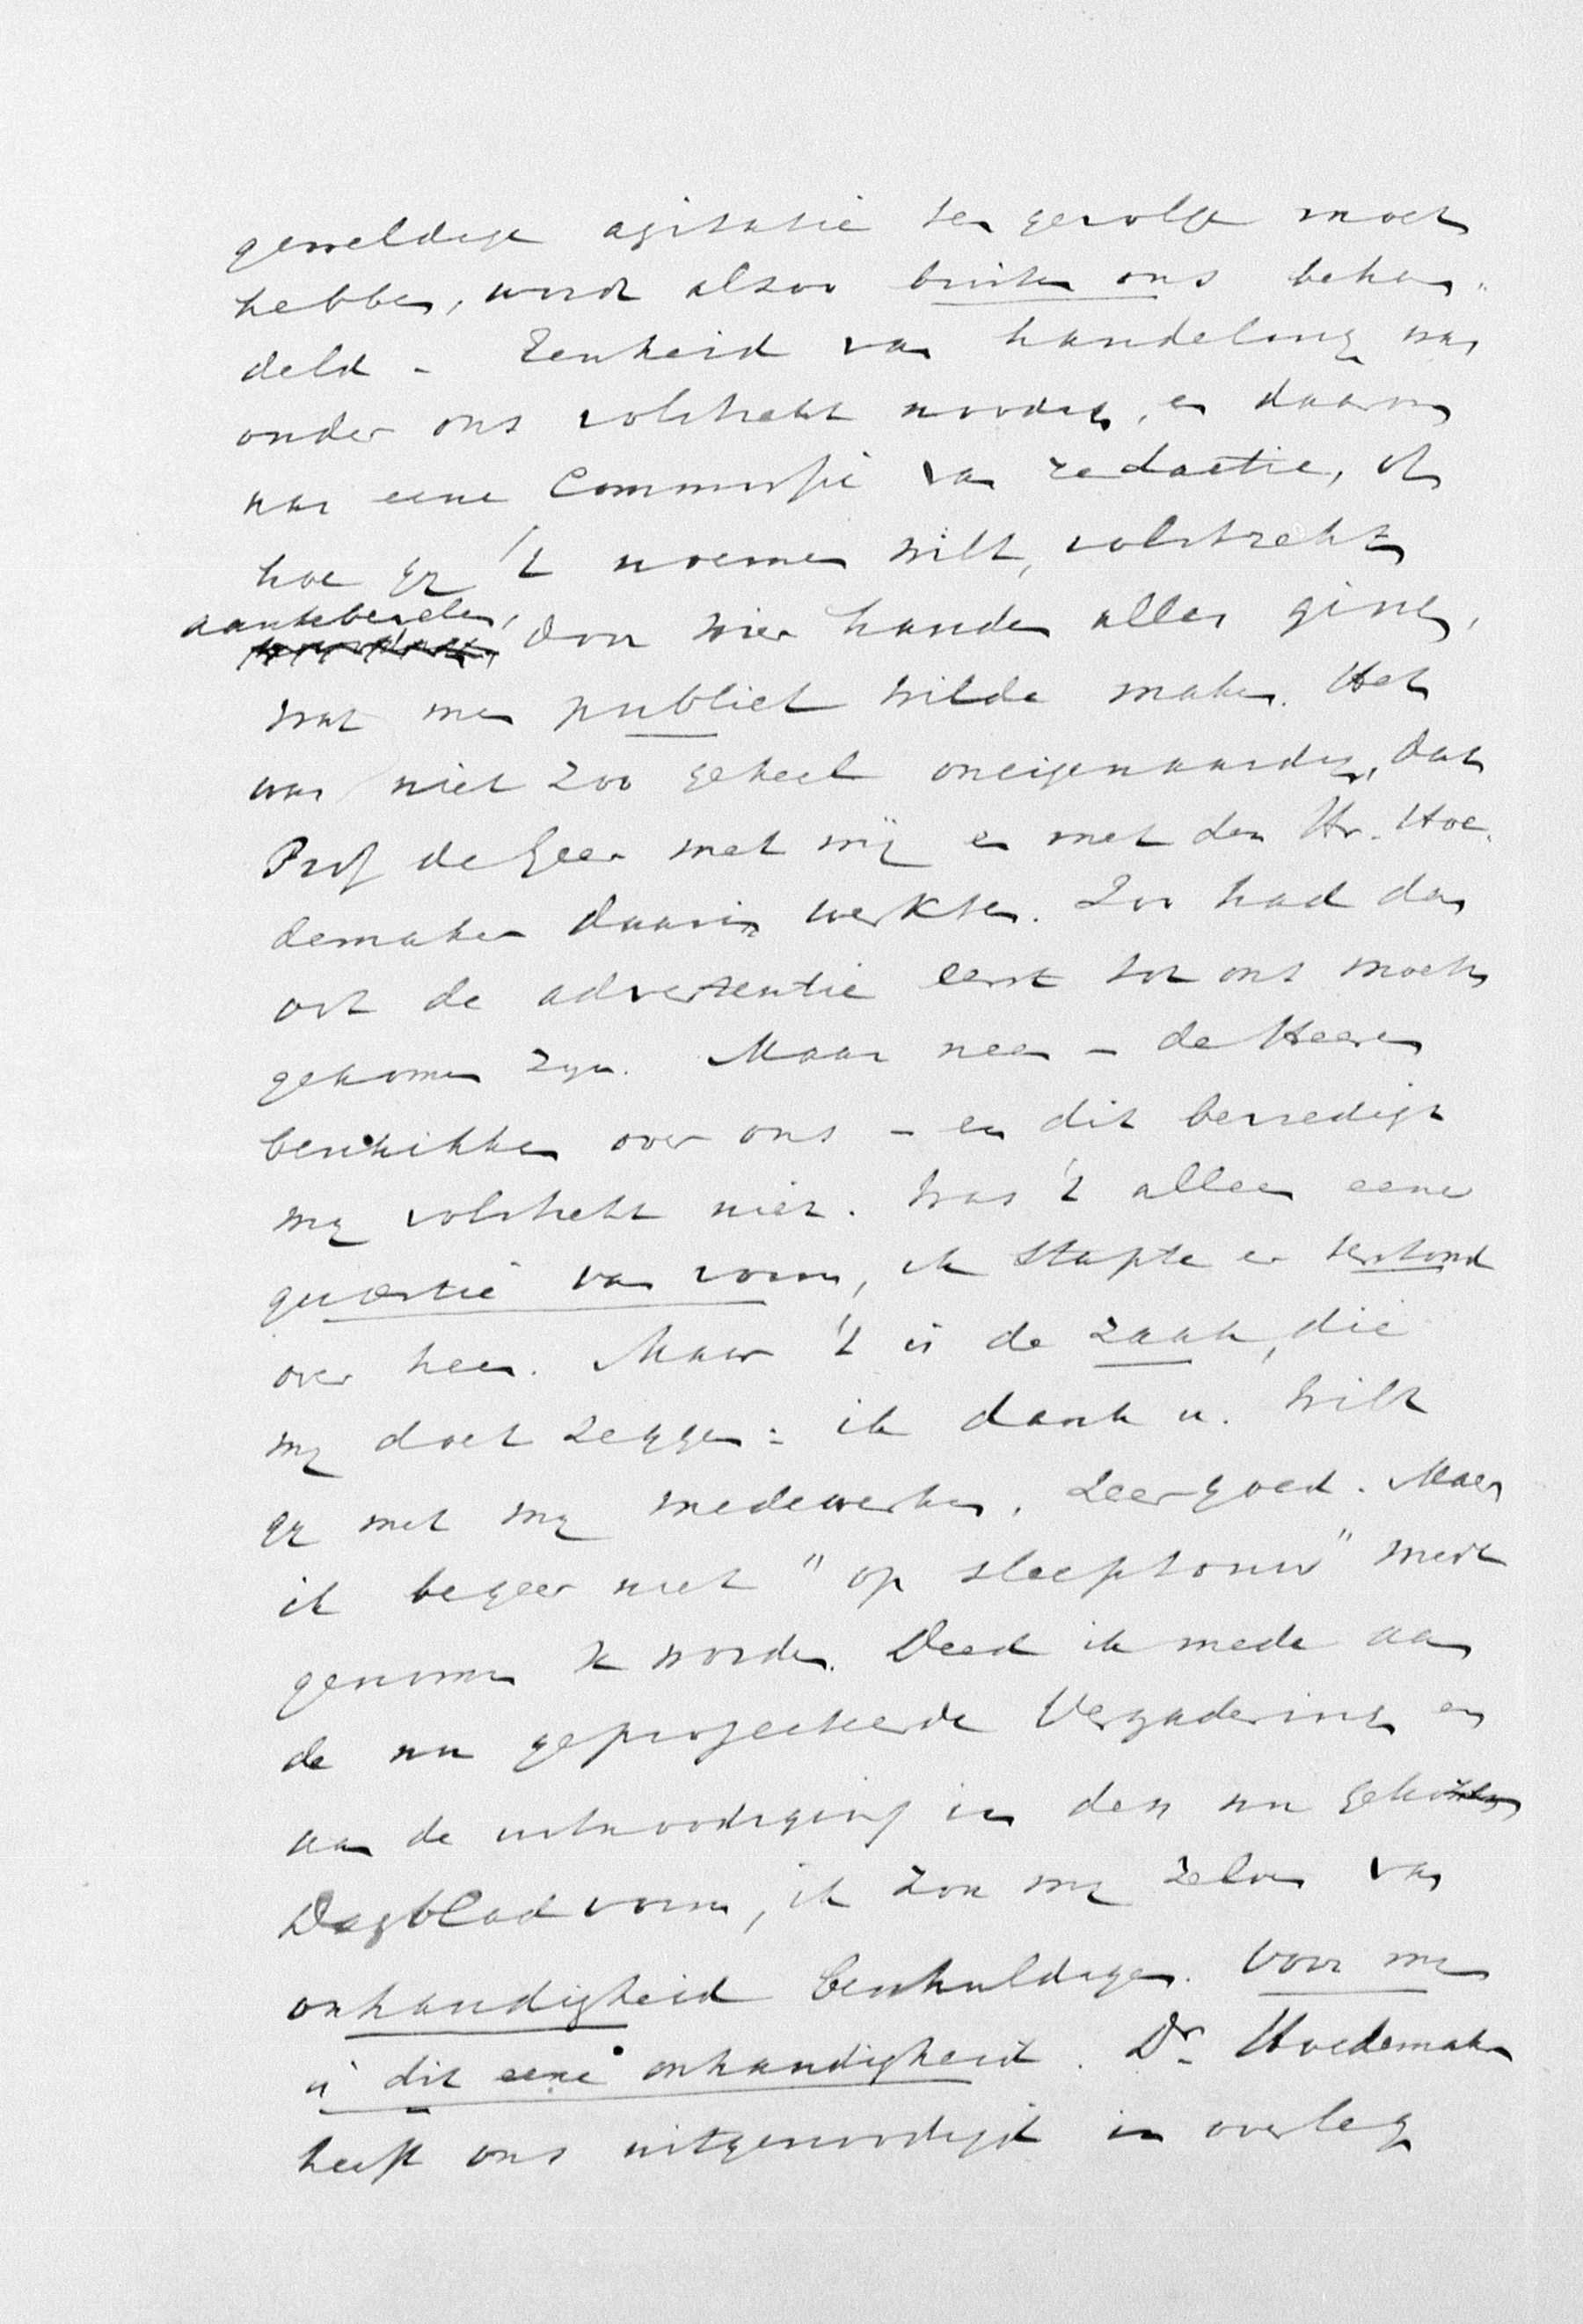 geweldige agitatie ten gevolge moet
hebben, wordt alzoo buiten ons behan-
deld - Eenheid van handeling was
onder ons volstrekt noodig, en daarom
was eene Commissie van redactie, of
hoe gy 't noemen wilt, volstrekt
aantebevelen, door wier handen alles ging,
wat men publiek wilde maken. Het
was niet zoo geheel oneigenaardig, dat
Prof de Geer met mij en met den Hr. Hoe-
demaker daarin werkten. Zoo had dan
ook de advertentie eerst tot ons moeten
gekomen zyn. Maar neen - de Heeren
beschikken over ons - en dit bevredigt
my volstrekt niet. Was 't alleen eene
quaestie van vorm, ik stapte er terstond
over heen. Maar 't is de zaak, die
my doet zeggen: ik dank u. Wilt
gy met my medewerken, zeer goed. Maar
ik begeer niet "op sleeptouw" mede
genomen te worden. Deed ik mede aan
de nu geprojecteerde Vergadering en
aan de uitnoodiging in den nu gekozen
Dagblad vorm, ik zou my zelven van
onhandigheid beschuldigen. Voor my
is dit eene onhandigheid. Dr. Hoedemaker
heeft ons uitgenoodigd in overleg